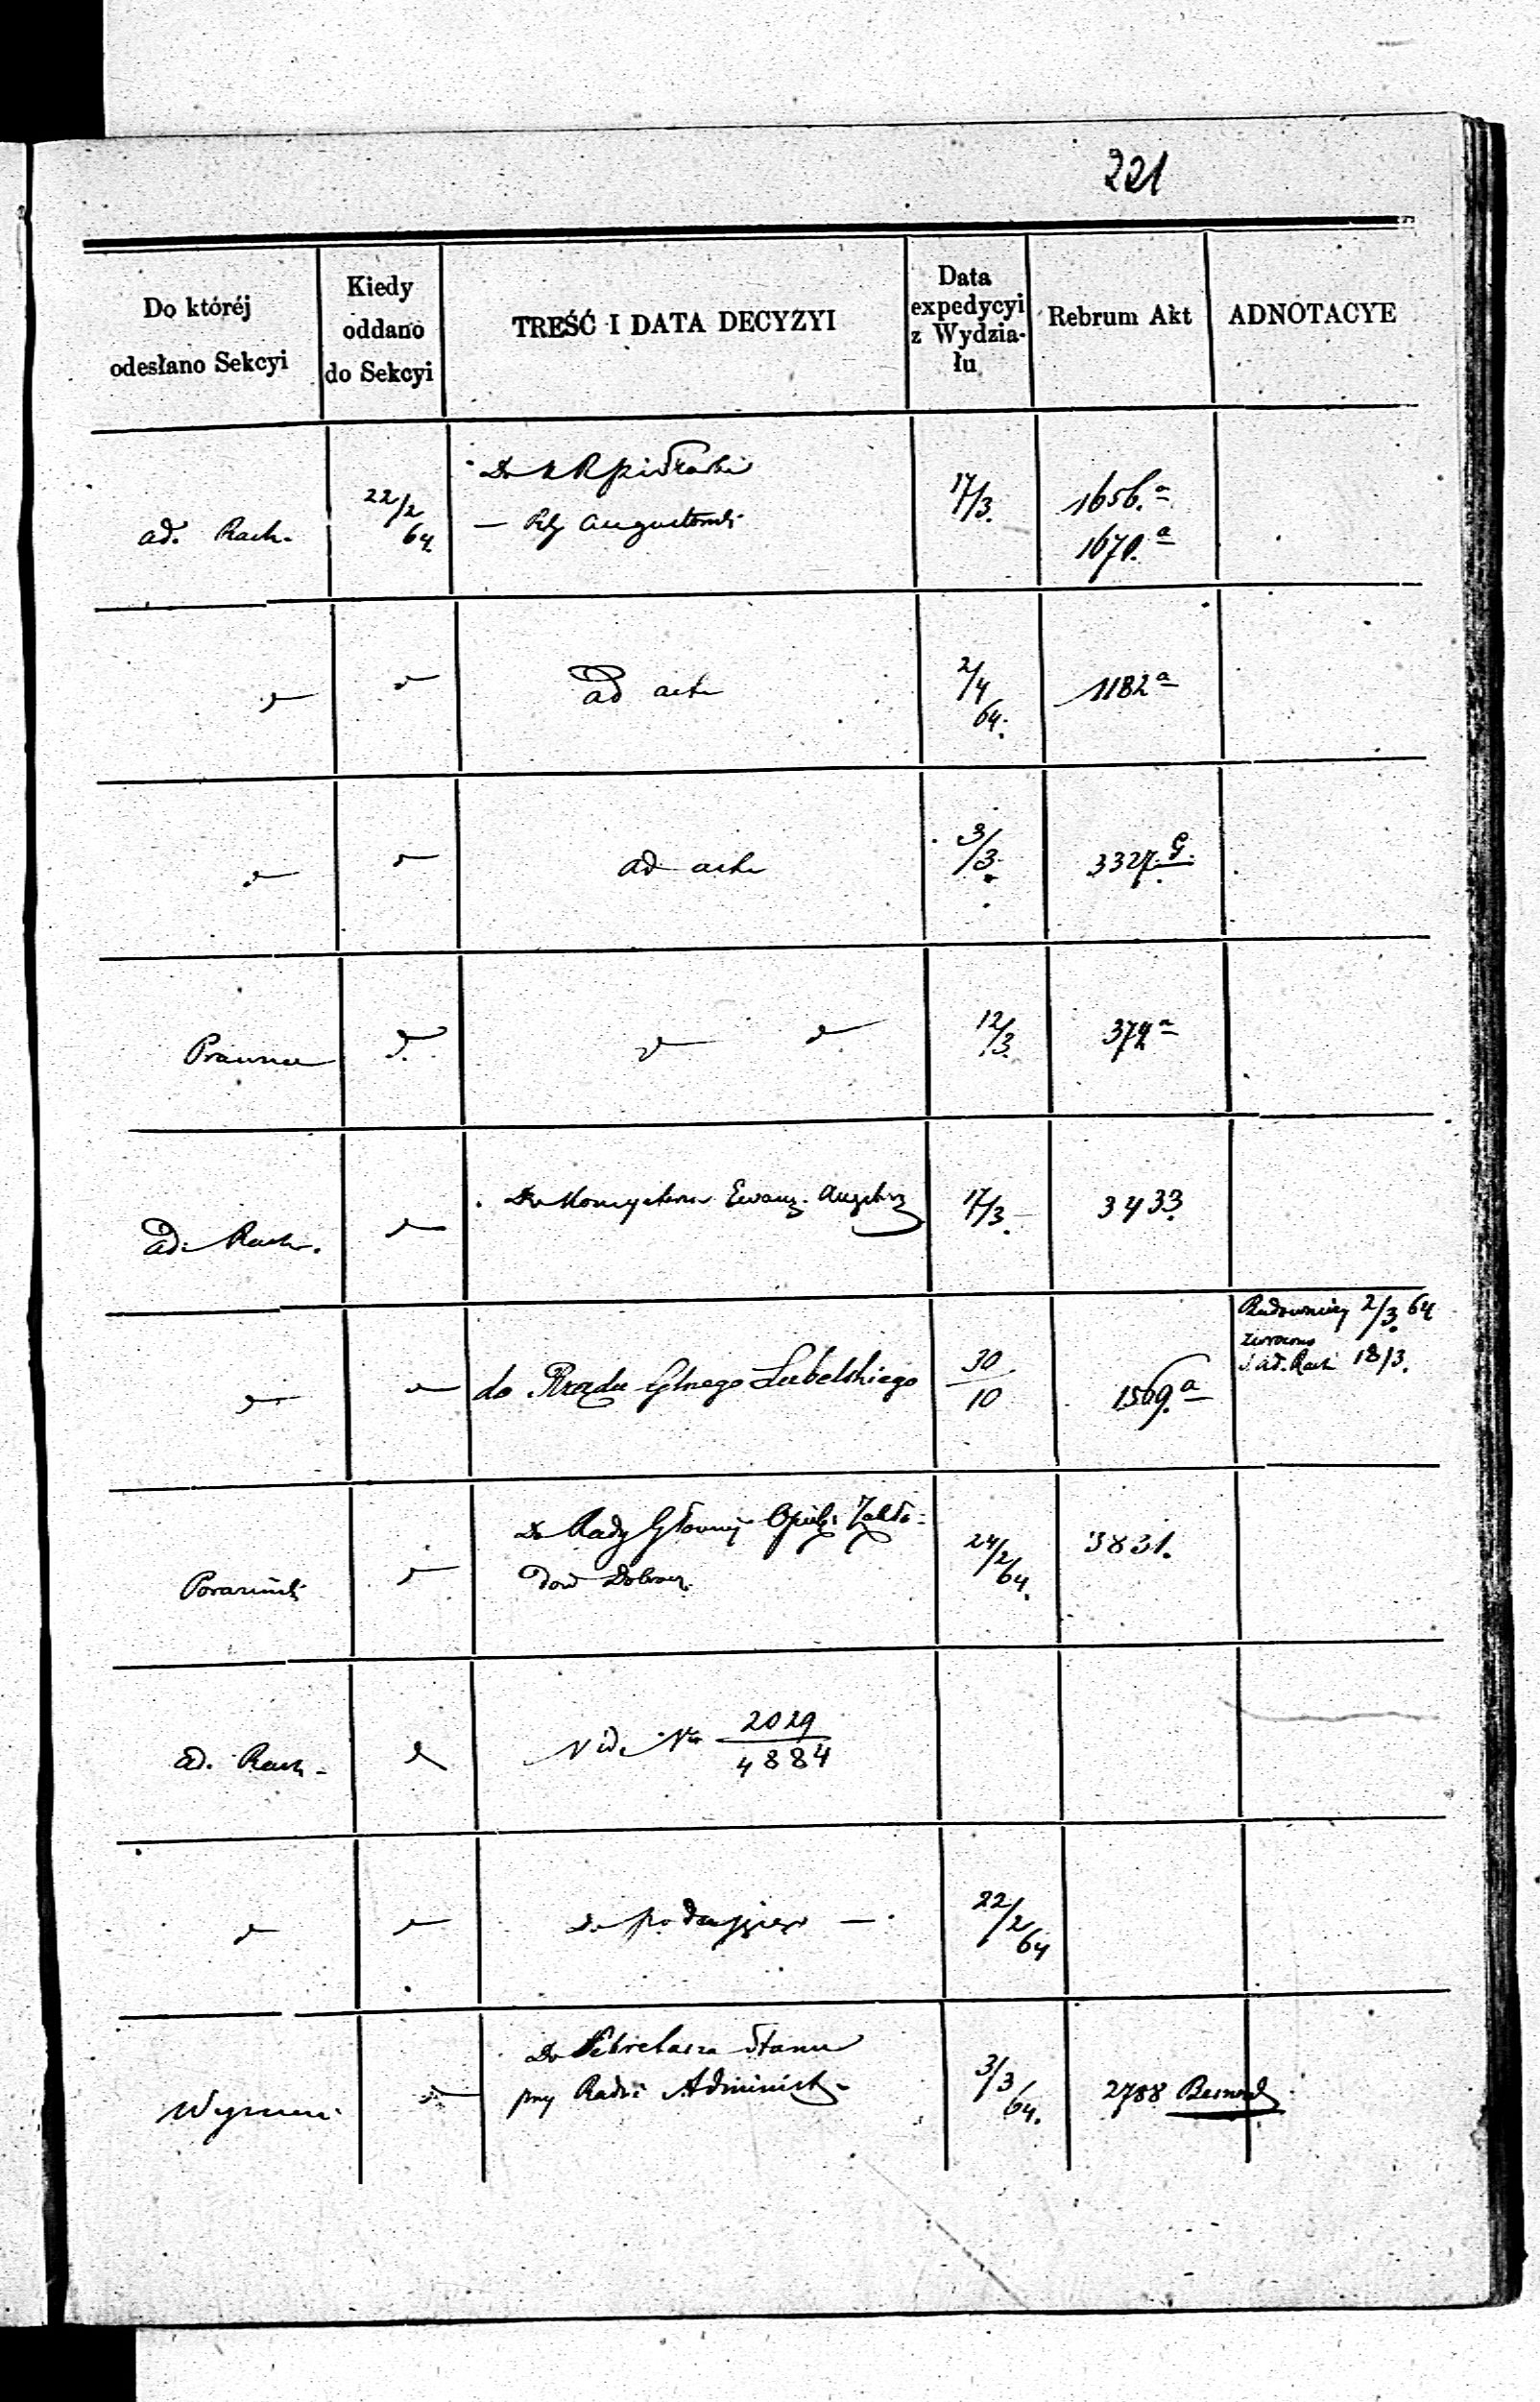 221
Do któréj
odesłano Sekcyi
Kiedy
oddano
do Sekcyi
TREŚĆ I DATA DECYZYI
Data
expedycyi
z Wydzia-
łu
Rebrum Akt
ADNOTACYE
ad. Rach.
22/2
64
Do
— Augustowski
17/3.
1656.a
1670.a
ad acta
2/4
64.
1182 a
ad acta
3/3.
3327. G.
Prawna
12/3.
374 a
ad. Rach.
Do Ewang. Augsburg
17/3.
3433
do Rządu Glnego Lubelskiego
30
10
1569.a
2/3. 64
zwrócono
ad. Rach 18/3.
Do Rady Głównej Opiek. Zakła-
dow Dobrocz.
24/2
64.
3831.
ad. Rach.
Vide Nr 2029
4884
Do podającego —
22/2
64
Do Sekretarza Stanu
przy Radzie Administ.
3/3
64.
2788